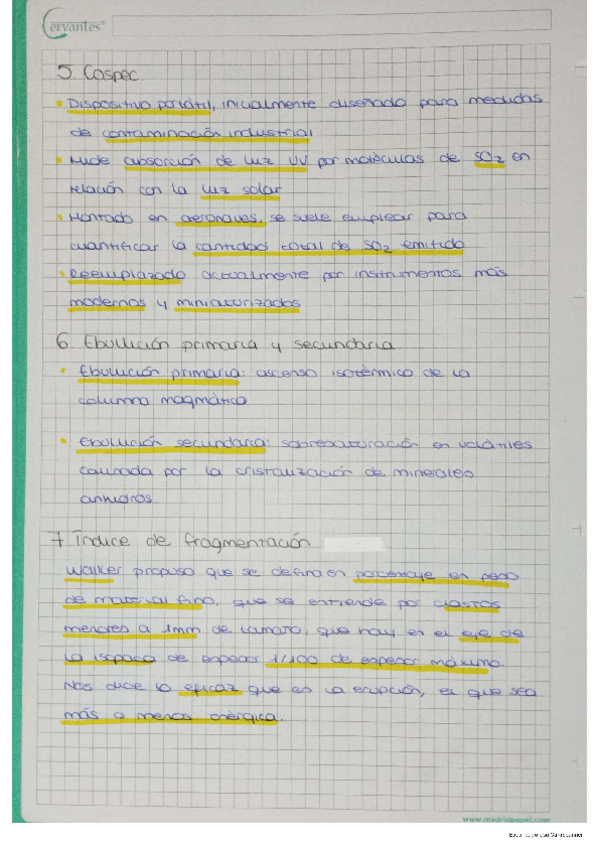 Cervantes
5. Cospec
• Dispositivo portátil, inicialmente diseñado para medidas
de contaminación industrial
• Mide absorción de luz UV por moléculas de SO2 en
relación con la luz solar
• Montado en aeronaves, se suele emplear para
cuantificar la cantidad total de SO2 emitido
• Reemplazado actualmente por instrumentos más
modernos y miniaturizados
6. Ebullición primaria y secundaria
• Ebullición primaria: ascenso isotérmico de la
columna magmática
• Ebullición secundaria: sobresaturación en volátiles
causada por la cristalización de minerales
anhidros
7. Índice de fragmentación
Walker propuso que se defina en porcentaje en peso
de material fino, que se entiende por clastos
menores a 1mm de tamaño, que hay en el eje de
la isopaca de espesor 1/100 de espesor máximo.
Nos dice lo eficaz que es la erupción, el que sea
más o menos enérgica.
www.madridpapel.com